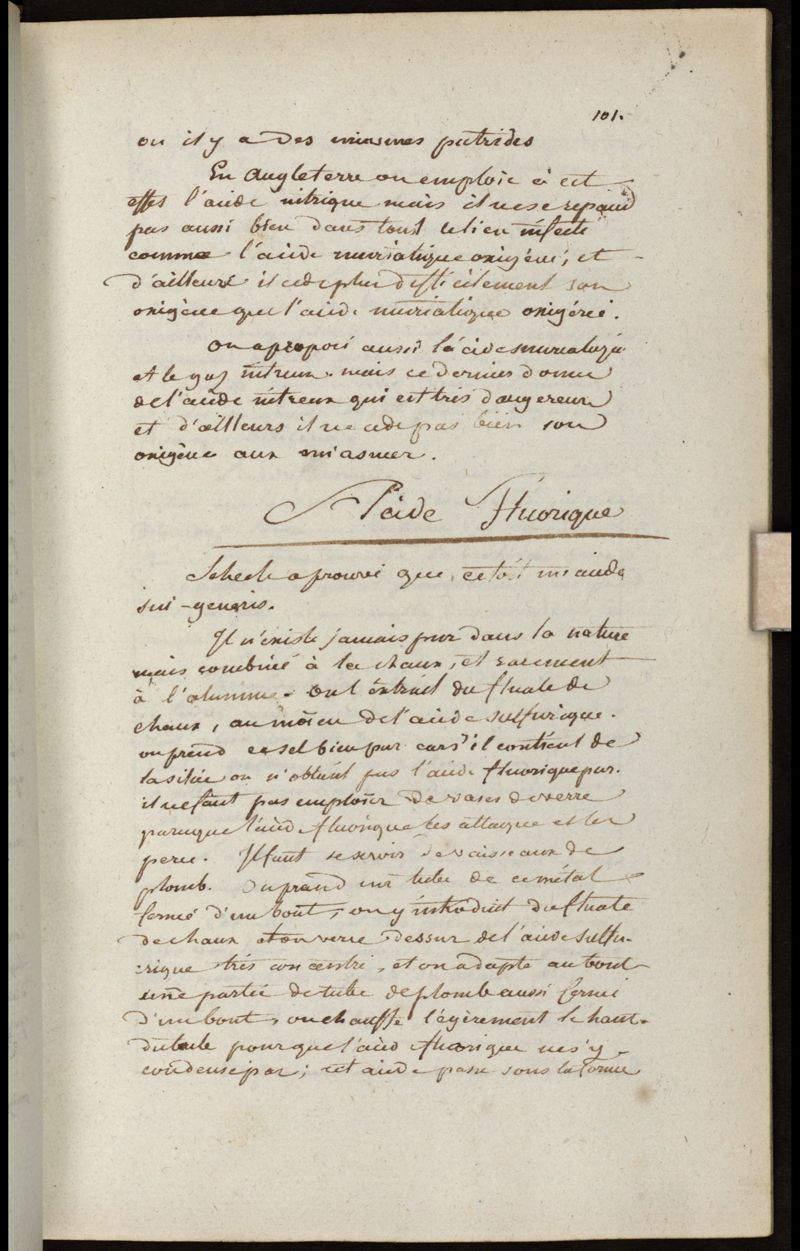 101.
ou il y a des miasmes putrides
En Angleterre on emploie à cet
effet l'acide nitrique mais il ne se repand
pas aussi bien dans tout le lieu infecté
comme l'acide muriatique oxigéné, et
d'ailleurs il cede plus difficilement son
oxigène que l'acide muriatique oxigéné.
On a proposé aussi l'acide muriatiq
et le gaz nitreux. mais ce dernier donne
de l'acide nitreux qui est très dangereux
et d'ailleurs il ne cede pas bien son
oxigène aux miasmes.
Acide Fluorique
Scheele a prouvé que c'etoit un acide
sui-generis.
Il n'existe jamais pur dans la nature
mais combiné à la chaux, et rarement
à l'alumine. On l'extrait du fluate de
chaux, au moien de l'acide sulfurique.
on prend ce sel bien pur car s'il contient de
la silice on n'obtient pas l'acide fluorique pur.
il ne faut pas emploier de vases de verre
parceque l'acide fluorique les attaque et les
perce. Il faut se servir de vaisseaux de
plomb. On prend un tube de ce métal
fermé d'un bout, on y introduit du fluate
de chaux et on verse dessus de l'acide sulfu-
rique très concentré, et on adapte au bout
une partie de tube de plomb aussi fermé
d'un bout, on chauffe légèrement le haut
du tube pour que l'acid fluorique ne s'y
condense pas; cet acide passe sous la forme